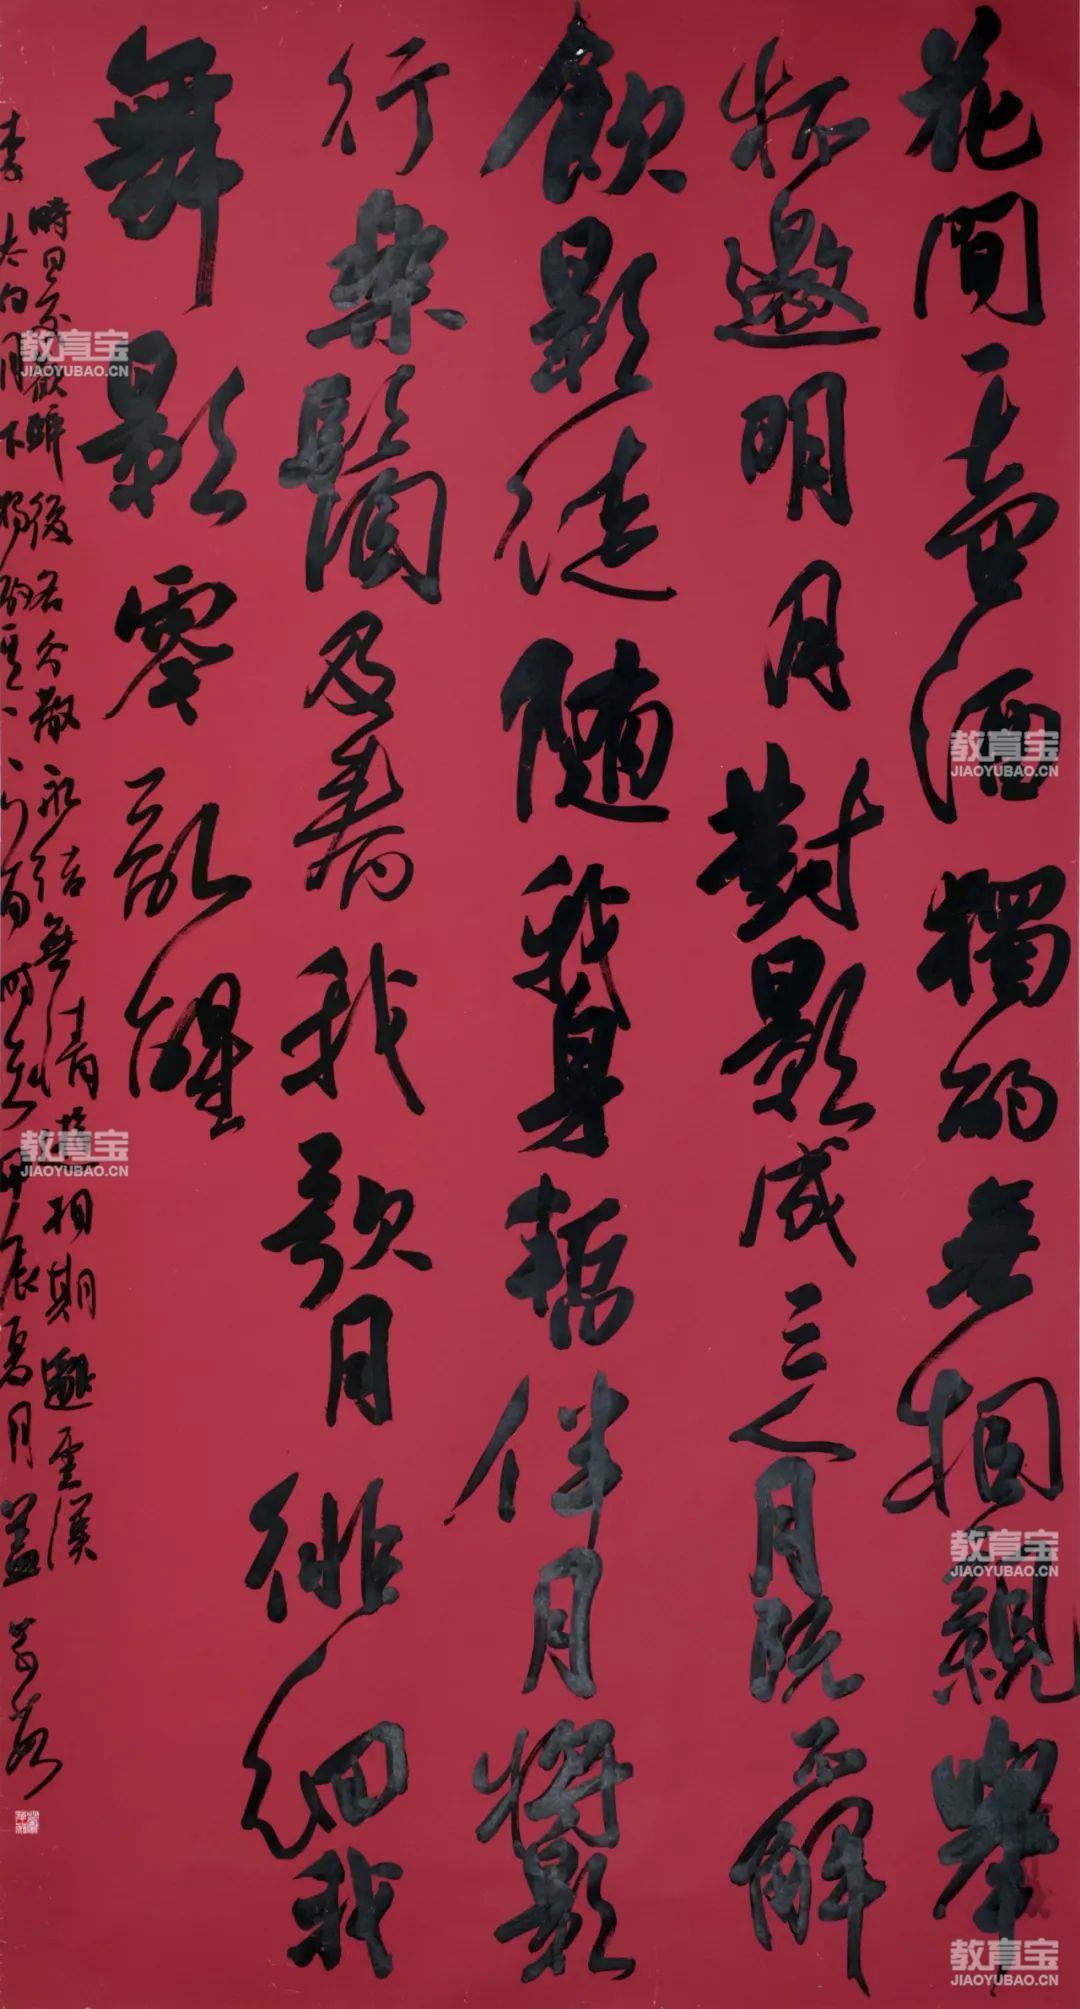 花間一壺酒獨酌無相親舉
杯邀明月對影成三人月既不解
飲影徒隨我身暫伴月將影
行樂鬚及春我歌月徘徊我
舞影零亂醒
時同交歡醉後各分散永結無情遊相期邈雲漢
李太白月下獨酌其一甲辰夏月
教育宝
JIAOYUBAO.CN
教育宝
JIAOYUBAO.CN
教育宝
JIAOYUBAO.CN
教育宝
JIAOYUBAO.CN
教育宝
JIAOYUBAO.CN